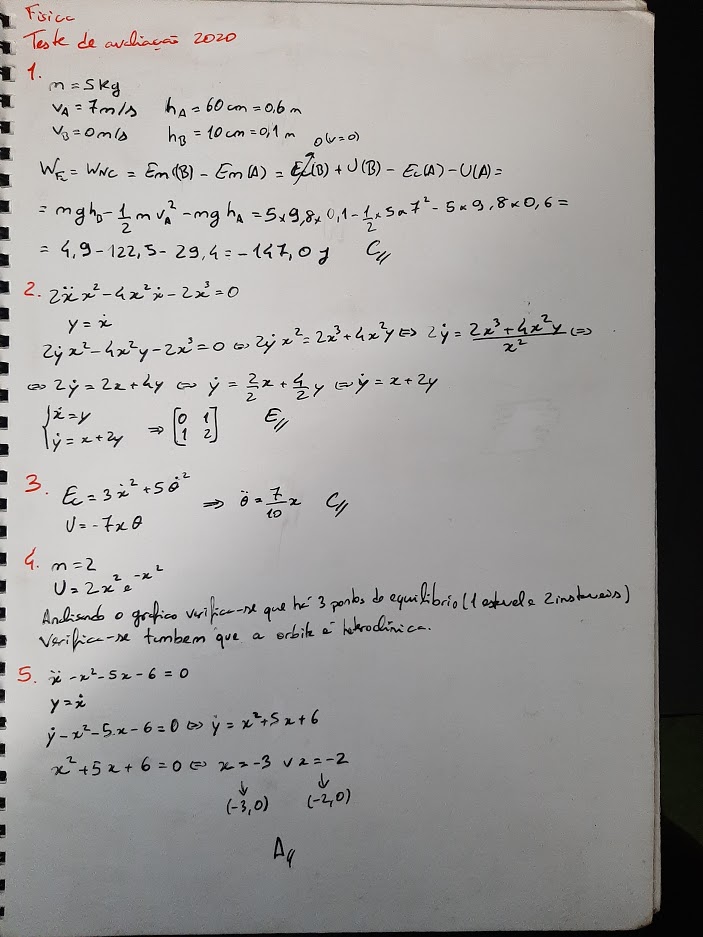 Física
Teste de avaliação 2020
1.
m = 5 kg
v_A = 7 m/s h_A = 60 cm = 0,6 m
v_B = 0 m/s h_B = 10 cm = 0,1 m
0 (v=0)
W_Fc = W_NC = Em(B) - Em(A) = Ec(B) + U(B) - Ec(A) - U(A) =
= mgh_B - 1/2 m v_A² - mg h_A = 5 x 9,8 x 0,1 - 1/2 x 5 x 7² - 5 x 9,8 x 0,6 =
= 4,9 - 122,5 - 29,4 = -147,0 J C//
2. 2ẍx² - 4x²ẋ - 2x³ = 0
y = ẋ
2ẏx² - 4x²y - 2x³ = 0 ⇔ 2ẏx² = 2x³ + 4x²y ⇔ 2ẏ = (2x³ + 4x²y)/x² ⇔
⇔ 2ẏ = 2x + 4y ⇔ ẏ = 2/2 x + 4/2 y ⇔ ẏ = x + 2y
{ ẋ = y
ẏ = x + 2y ⇒ [0 1
1 2] E//
3. Ec = 3ẋ² + 5θ̇²
U = -7xθ ⇒ θ̈ = 7/10 x C//
4. m = 2
U = 2x² e^(-x²)
Analisando o gráfico verifica-se que há 3 pontos de equilíbrio (1 estavel e 2 instaveis)
Verifica-se tambem que a orbita é heteroclínica.
5. ẍ - x² - 5x - 6 = 0
y = ẋ
ẏ - x² - 5x - 6 = 0 ⇔ ẏ = x² + 5x + 6
x² + 5x + 6 = 0 ⇔ x = -3 ∨ x = -2
↓ ↓
(-3,0) (-2,0)
A//